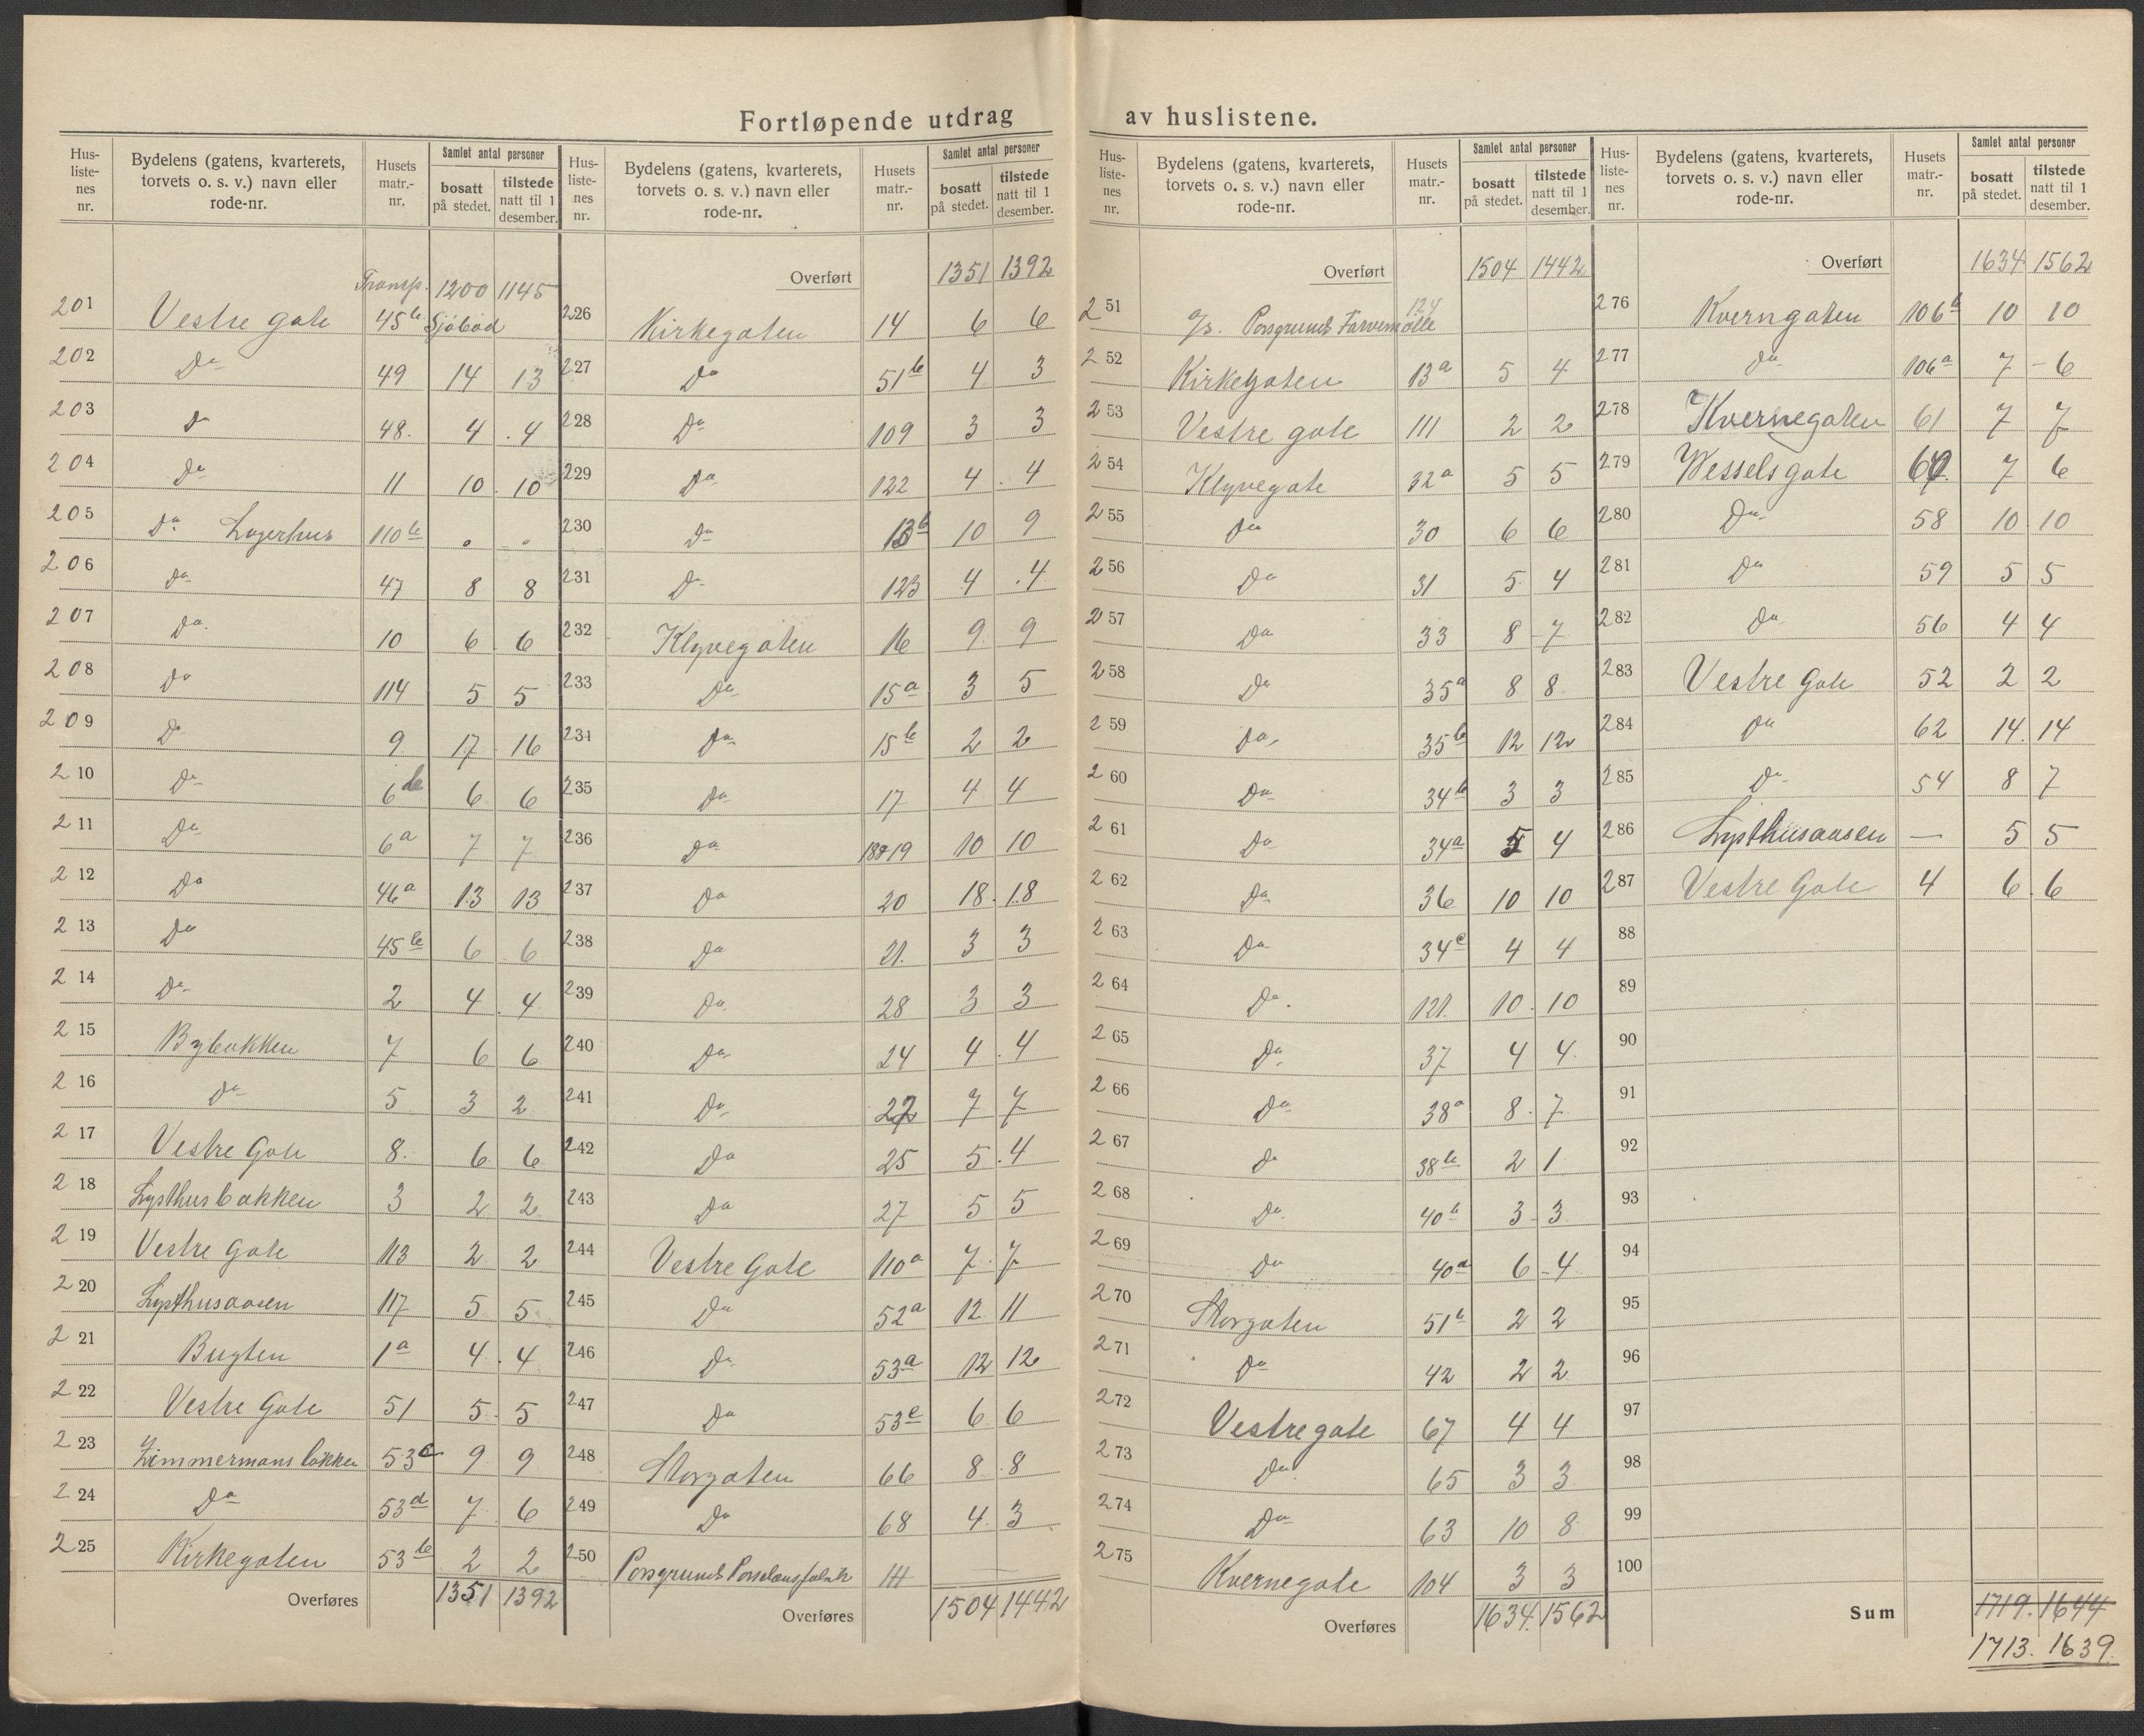 Fortløpende utdrag av huslistene.
Hus-listenes nr. | Bydelens (gatens, kvarterets, torvets o. s. v.) navn eller rode-nr. | Husets matr.-nr. | Samlet antal personer | bosatt på stedet. | tilstede natt til 1 desember.
Transp. 1200 1145
201 Vestre gate 45b Sjöbod
202 Do 49 14 13
203 Do 48. 4 4
204 Do 11 10 10
205 Do Lagerhus 110b . .
206 Do 47 8 8
207 Do. 10 6 6
208 Do 114 5 5
209 Do 9 17 16
210 Do 6b 6 6
211 Do 6a 7 7
212 Do 46a 13 13
213 Do 45b 6 6
214 Do 2 4 4
215 Bybakken 7 6 6
216 Do 5 3 2
217 Vestre Gate 8. 6 6
218 Lysthusbakken 3 2 2
219 Vestre Gate 113 2 2
220 Lysthusaasen 117 5 5
221 Bugten 1a 4 4
222 Vestre Gate 51 5 5
223 Zimmermans løkken 53c 9 9
224 Do 53d 7 6
225 Kirkegaten 53b 2 2
Overføres 1351 1392
Hus-listenes nr. | Bydelens (gatens, kvarterets, torvets o. s. v.) navn eller rode-nr. | Husets matr.-nr. | Samlet antal personer | bosatt på stedet. | tilstede natt til 1 desember.
Overført 1351 1392
226 Kirkegaten 14 6 6
227 Do 51b 4 3
228 Do 109 3 3
229 Do 122 4 4
230 Do 13b 10 9
231 Do 123 4 4
232 Klyvegaten 16 9 9
233 Do 15a 3 5
234 Do 15b 2 2
235 Do 17 4 4
236 Do 18819 10 10
237 Do 20 18 18
238 Do 21. 3 3
239 Do 28 3 3
240 Do 24 4 4
241 Do 22 7 7
242 Do 25 5 4
243 Do 27 5 5
244 Vestre Gate 110a 7 7
245 Do 52a 12 11
246 Do 53a 12 12
247 Do 53e 6 6
248 Storgaten 66 8 8
249 Do 68 4 3
250 Porsgrunds Porselænsfabrik
Overføres 1504 1442
Hus-listenes nr. | Bydelens (gatens, kvarterets, torvets o. s. v.) navn eller rode-nr. | Husets matr.-nr. | Samlet antal personer | bosatt på stedet. | tilstede natt til 1 desember.
Overført 1504 1442
251 A/S. Porsgrunds Farvemølle 124
252 Kirkegaten 13a 5 4
253 Vestre gate 111 2 2
254 Klyvegate 32a 5 5
255 Do 30 6 6
256 Do 31 5 4
257 Do 33 8 7
258 Do 35a 8 8
259 Do, 35b 12 12
260 Do 34b 3 3
261 Do 34a 5 4
262 Do 36 10 10
263 Do 34c 4 4
264 Do. 121. 10 10
265 Do 37 4 4
266 Do 38a 8 7
267 Do 38b 2 1
268 Do 40b 3 3
269 Do 40a 6 4
270 Storgaten 51b 2 2
271 Do 42 2 2
272 Vestregate 67 4 4
273 Do 65 3 3
274 Do 63 10 8
275 Kvernegate 104 3 3
Overføres 1634 1562
Hus-listenes nr. | Bydelens (gatens, kvarterets, torvets o. s. v.) navn eller rode-nr. | Husets matr.-nr. | Samlet antal personer | bosatt på stedet. | tilstede natt til 1 desember.
Overført 1634 1562
276 Kverngaten 106b 10 10
277 do 106a 7 6
278 Kvernegaten 61 7 7
279 Wesselsgate 7 6
280 Do 58 10 10
281 Do 59 5 5
282 Do 56 4 4
283 Vestre Gate 52 2 2
284 Do 62 14 14
285 Do 54 8 7
286 Lysthusaasen — 5 5
287 Vestre Gate 4 6 6
88
89
90
91
92
93
94
95
96
97
98
99
100
Sum 1719. 1644
1713. 1639.